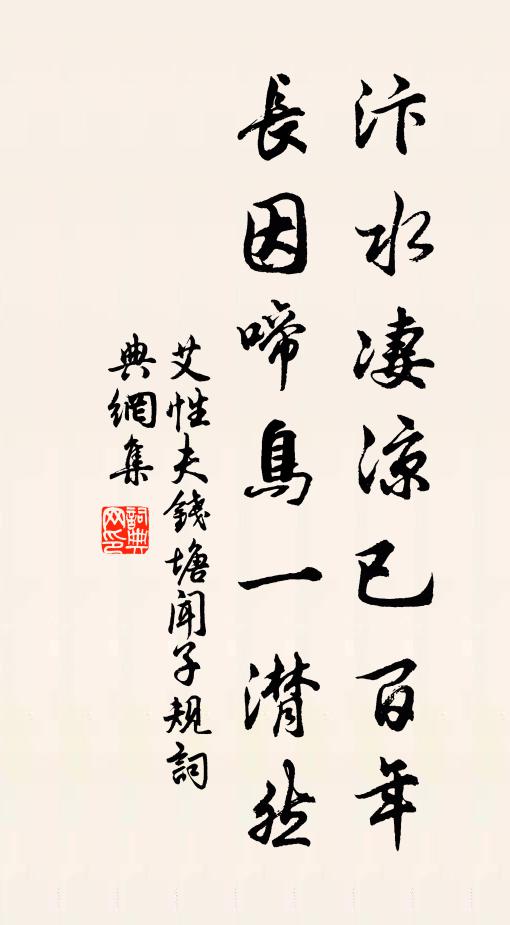 汴水淒涼已百年
長因啼鳥一潸然
艾性夫錢塘聞子規詞
典網集
詞典網印